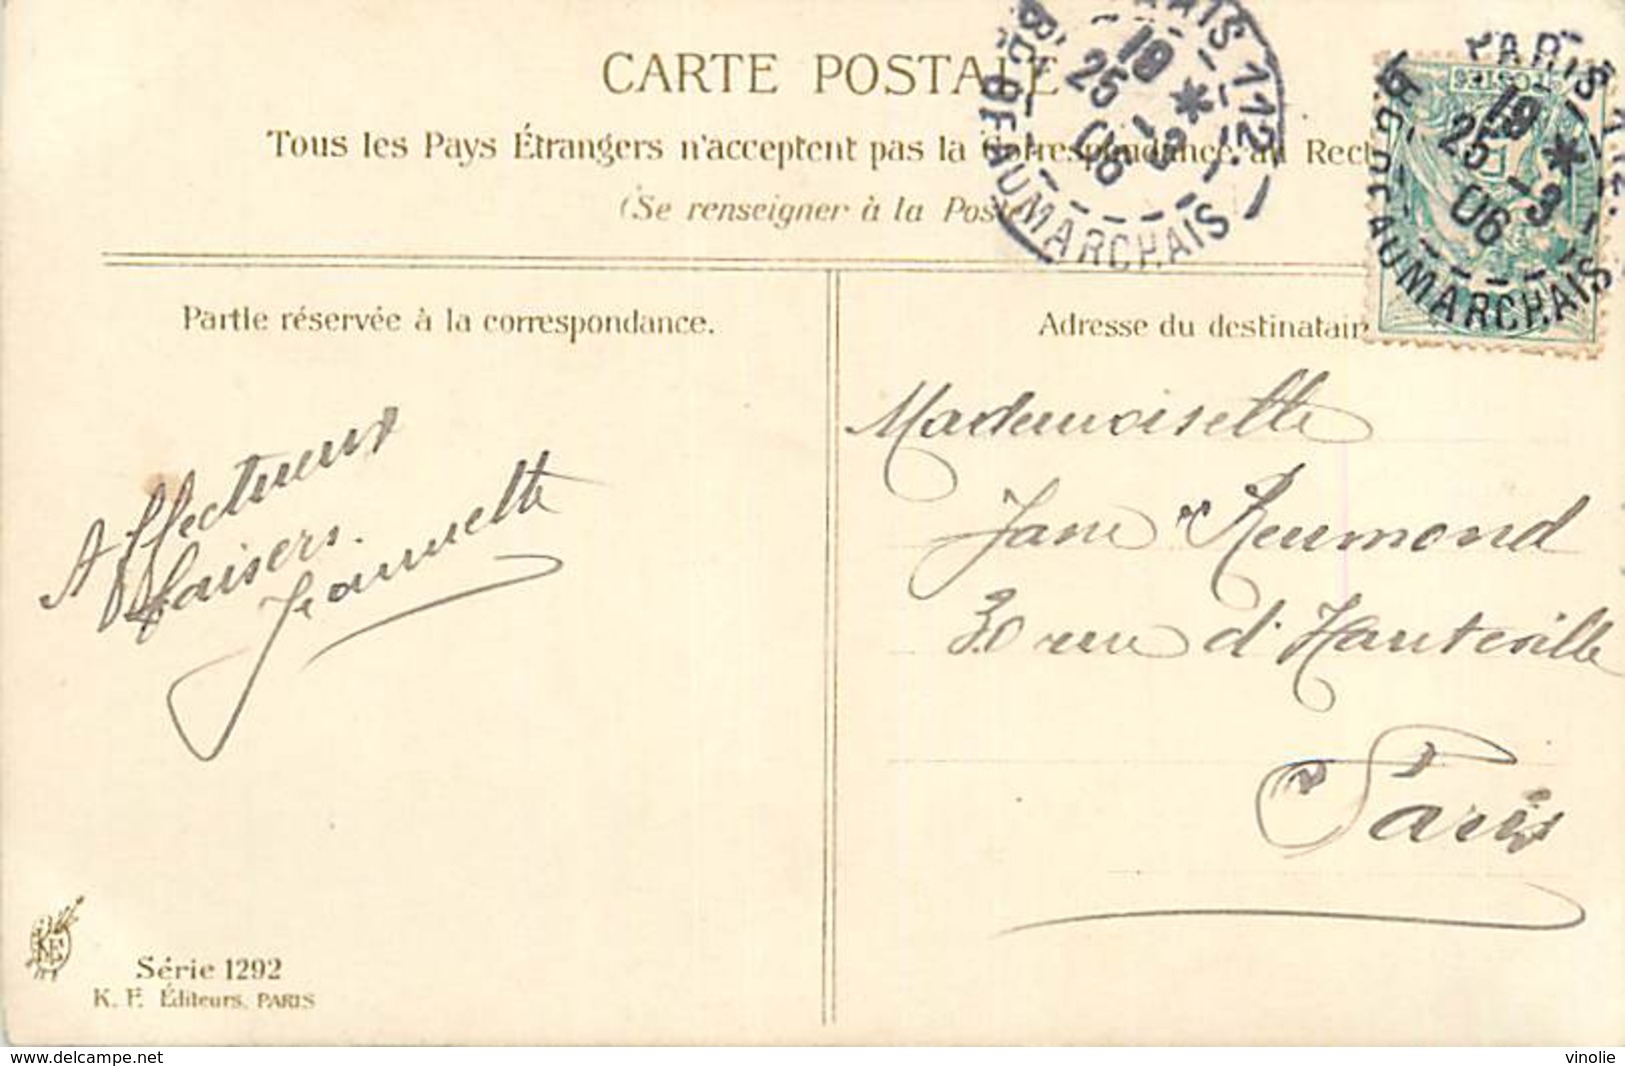 CARTE POSTALE
Tous les Pays Étrangers n'acceptent pas la Correspondance au Rect
(Se renseigner à la Poste)
PARIS 112
19 *
25 - 3
06
BD BEAUMARCHAIS
POSTES
PARIS 112
19 *
25 - 3
06
BD BEAUMARCHAIS
Partie réservée à la correspondance.
Adresse du destinatair
Affectueux
baisers.
Jeannette
Mademoiselle
Jane Reumond
30 rue d'Hauteville
Paris
KF
Série 1292
K. F. Éditeurs, PARIS
www.delcampe.net
vinolie